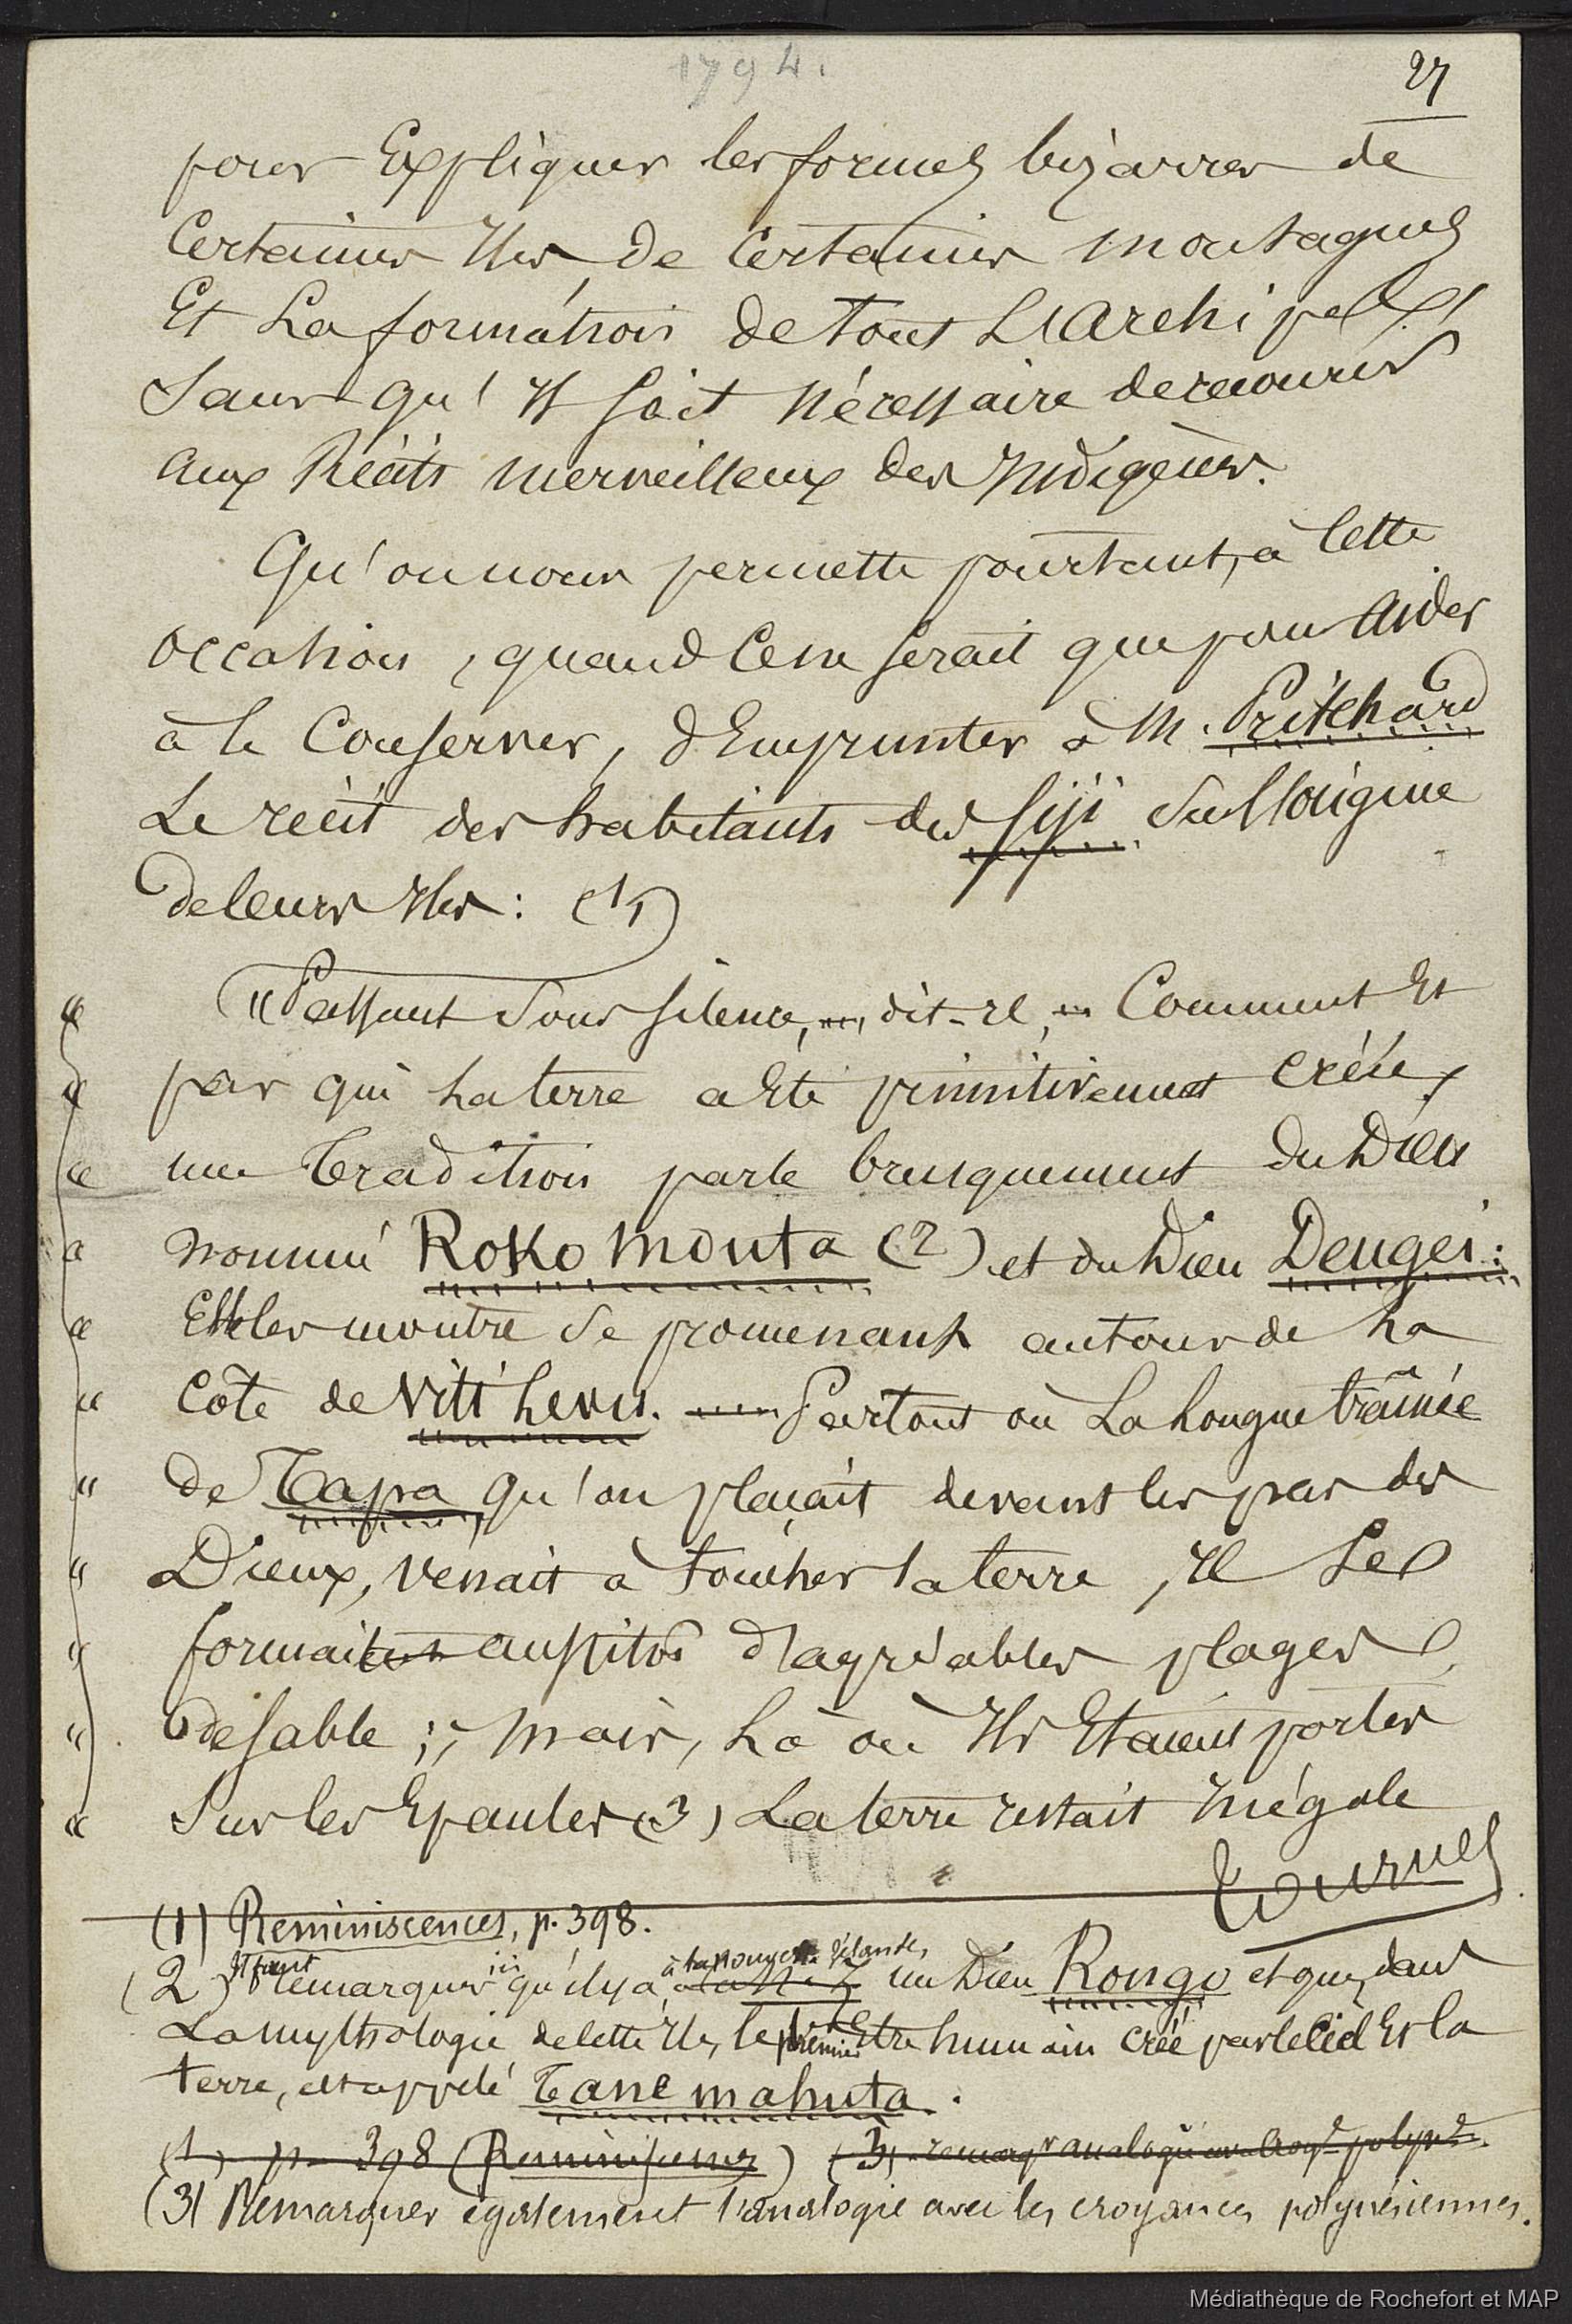 1794.
27
pour Expliquer les formes bizarres de
Certaines Iles, de Certaines montagnes
Et La formation de tout L'archipel,
Sans qu'Il soit Nécessaire de recourir
aux Récits merveilleux des Indigènes.
Qu'on nous permette pourtant, à Cette
occasion, quand Ce ne serait que pour aider
à le Conserver, d'Emprunter à M. Pritchard
Le récit des habitants des fiji sur l'origine
de leurs Iles : (1)
" "Passant sous silence, — dit-Il, — Comment Et
" par qui La terre a Eté primitivement créée,
" une Tradition parle brusquement du Dieu
" nommé Roko mouta (2) et du Dieu Deugei :
" Elle les montre se promenant autour de La
" Côte de Viti Levu. — Partout où La Longue traînée
" de Tapa qu'on plaçait devant les pas des
" Dieux, venait à toucher la terre, Il se
" formait aussitôt d'agréables plages
" de sable ; mais, Là où Ils Etaient portés
" Sur les Epaules (3) La terre restait Inégale
Tournes
(1) Reminiscences, p. 398.
(2) Il faut remarquer ici qu'il y a, à la Nouvelle Zélande, un Dieu Rongo et que, dans
La mythologie de cette Ile, le premier Etre humain créé par le Ciel Et la
terre, est appelé Tane mahuta.
(1) p. 398 (Reminiscences) (3) remarqr analogie avec croyces polynes.
(3) Remarquer également l'analogie avec les croyances polynésiennes.
Médiathèque de Rochefort et MAP